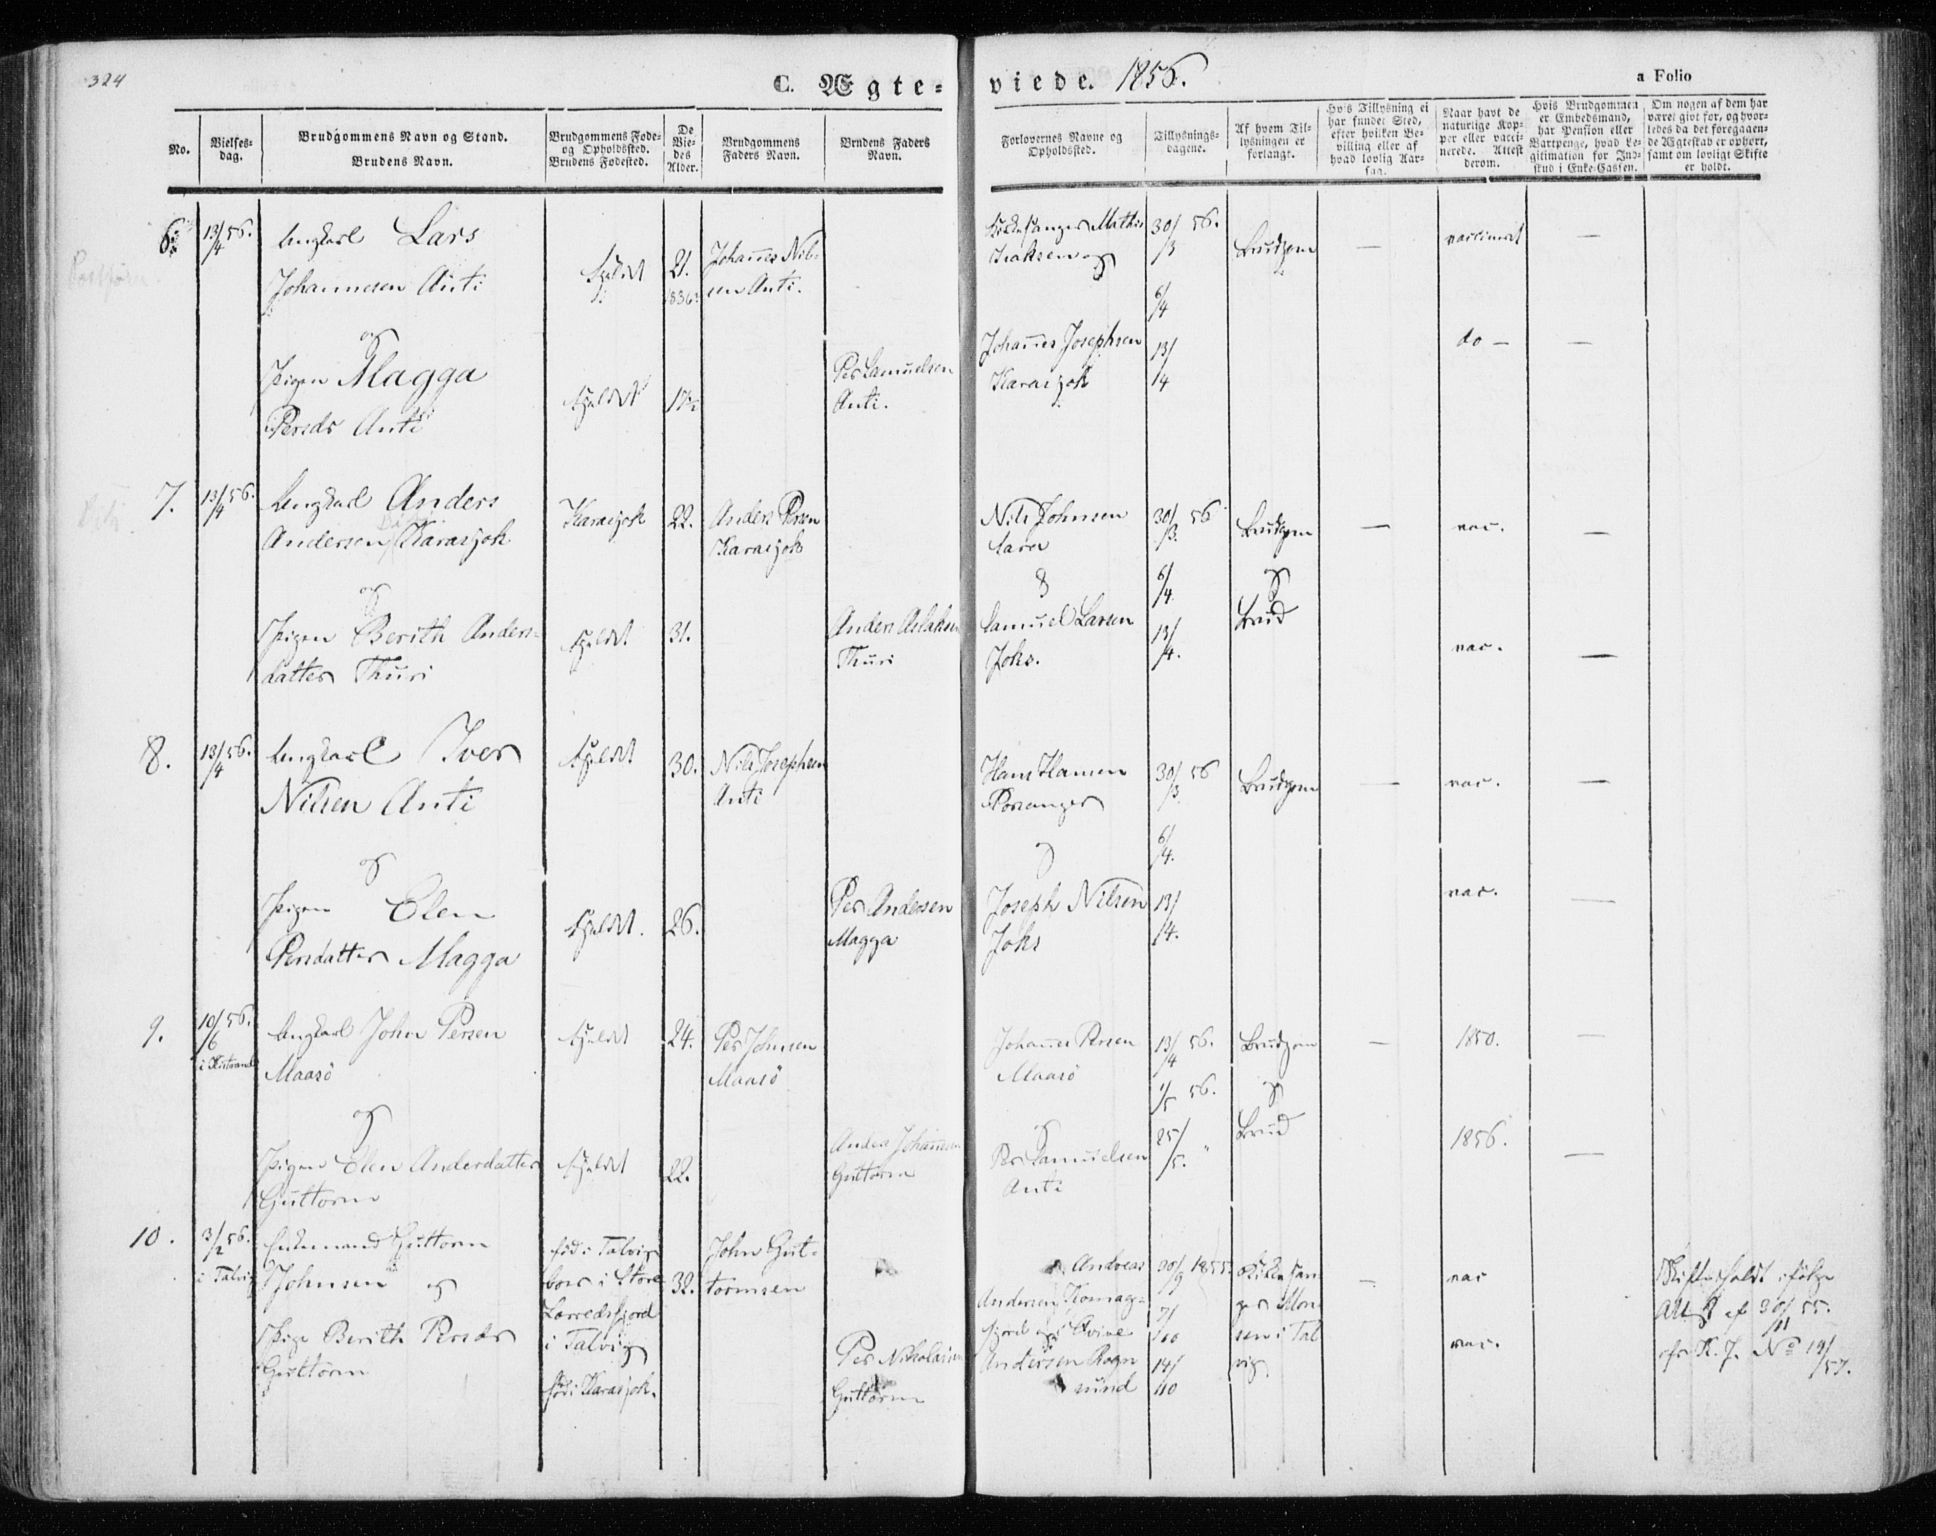 324
C. Ægte-
viede. 1856.
a Folio
No.
Vielses-
dag.
Brudgommens Navn og Stand.
Brudens Navn.
Brudgommens Føde-
og Opholdssted.
Brudens Fødested.
De
Vie-
des
Alder.
Brudgommens
Faders Navn.
Brudens Faders
Navn.
Forlovernes Navne og
Opholdssted.
Tillysnings-
dagene.
Af hvem Til-
lysningen er
forlangt.
Hvis Tillysning ei
har fundet Sted,
efter hvilken Be-
villing eller af
hvad lovlig Aar-
sag.
Naar havt de
naturlige Kop-
per eller vacci-
nerede. Attest
derom.
Hvis Brudgommen
er Embedsmand,
har Pension eller
Vartpenge, hvad Le-
gitimation for Ind-
skud i Enke-Cassen.
Om nogen af dem har
været givt før, og hvor-
ledes da det foregaaen-
de Ægteskab er ophørt,
samt om lovligt Skifte
er holdt.
6.
13/4 56.
Ungkarl Lars
Johannesen Anti
Fjeldet
21.
1836
Johannes Nil-
sen Anti.
Kirkesanger Mathis
Isaksen og
30/3 56.
6/4
Brudgom
—
vaccineret
—
og
Pigen Magga
Persdr Anti
Fjeldet
17½
Per Samuelsen
Anti.
Johannes Josephsen
Karasjok
13/4
do —
—
7.
13/4 56.
Ungkarl Anders
Andersen Karasjok
Karasjok
22.
Anders Persen
Karasjok
Nils Johnsen
Sara
30/3 56
Brudgom
—
vac.
—
og
&
6/4
og
Pigen Berith Anders-
datter Thuri
Fjeldet
31.
Anders Aslaksen
Thuri
Samuel Larsen
Joks.
13/4.
Brud
vac.
—
8.
13/4 56.
Ungkarl Iver
Nilsen Anti
Fjeldet
30.
Nils Josephsen
Anti
Hans Hansen
Porsanger
30/3 56
Brudgom
—
vac.
—
og
6/4.
Pigen Elen
Persdatter Magga
Fjeldet.
26.
Per Andersen
Magga
Joseph Nilsen
Joks
13/4.
vac.
—
9.
10/6 56.
i Kistrand
Ungkarl John Persen
Maasö
Fjeldet
24.
Per Johnsen
Maasö
Johannes Persen
Maasö
13/4 56.
1/5 56.
Brudgom
—
1850.
—
og
og
og
Pigen Elen Andersdatter
Guttorm
Fjeldet
22.
Anders Johannesen
Guttorm
Per Samuelsen
Anti
25/5. "
Brud
1856.
—
10.
3/2 56.
i Talvig
Enkemand Guttorm
Johnsen og
Pige Berith Persdr
Guttorm
föd i Talvig
boer i Store
Lerredsfjord
i Talvig
föd i Karasjok.
32.
John Gut-
tormsen
Per Nikolaisen
Guttorm
Andreas
Andersen Komag-
fjord og Evine
Andersen Rogn
sund
30/9 1855.
7/10
14/10
Kirkesan-
ger Mon-
sen i Tal
vig
—
vac
vac.
Skifte holdt ifölge
Att. af 30/11 55.
cfr K. J. No 19/57.